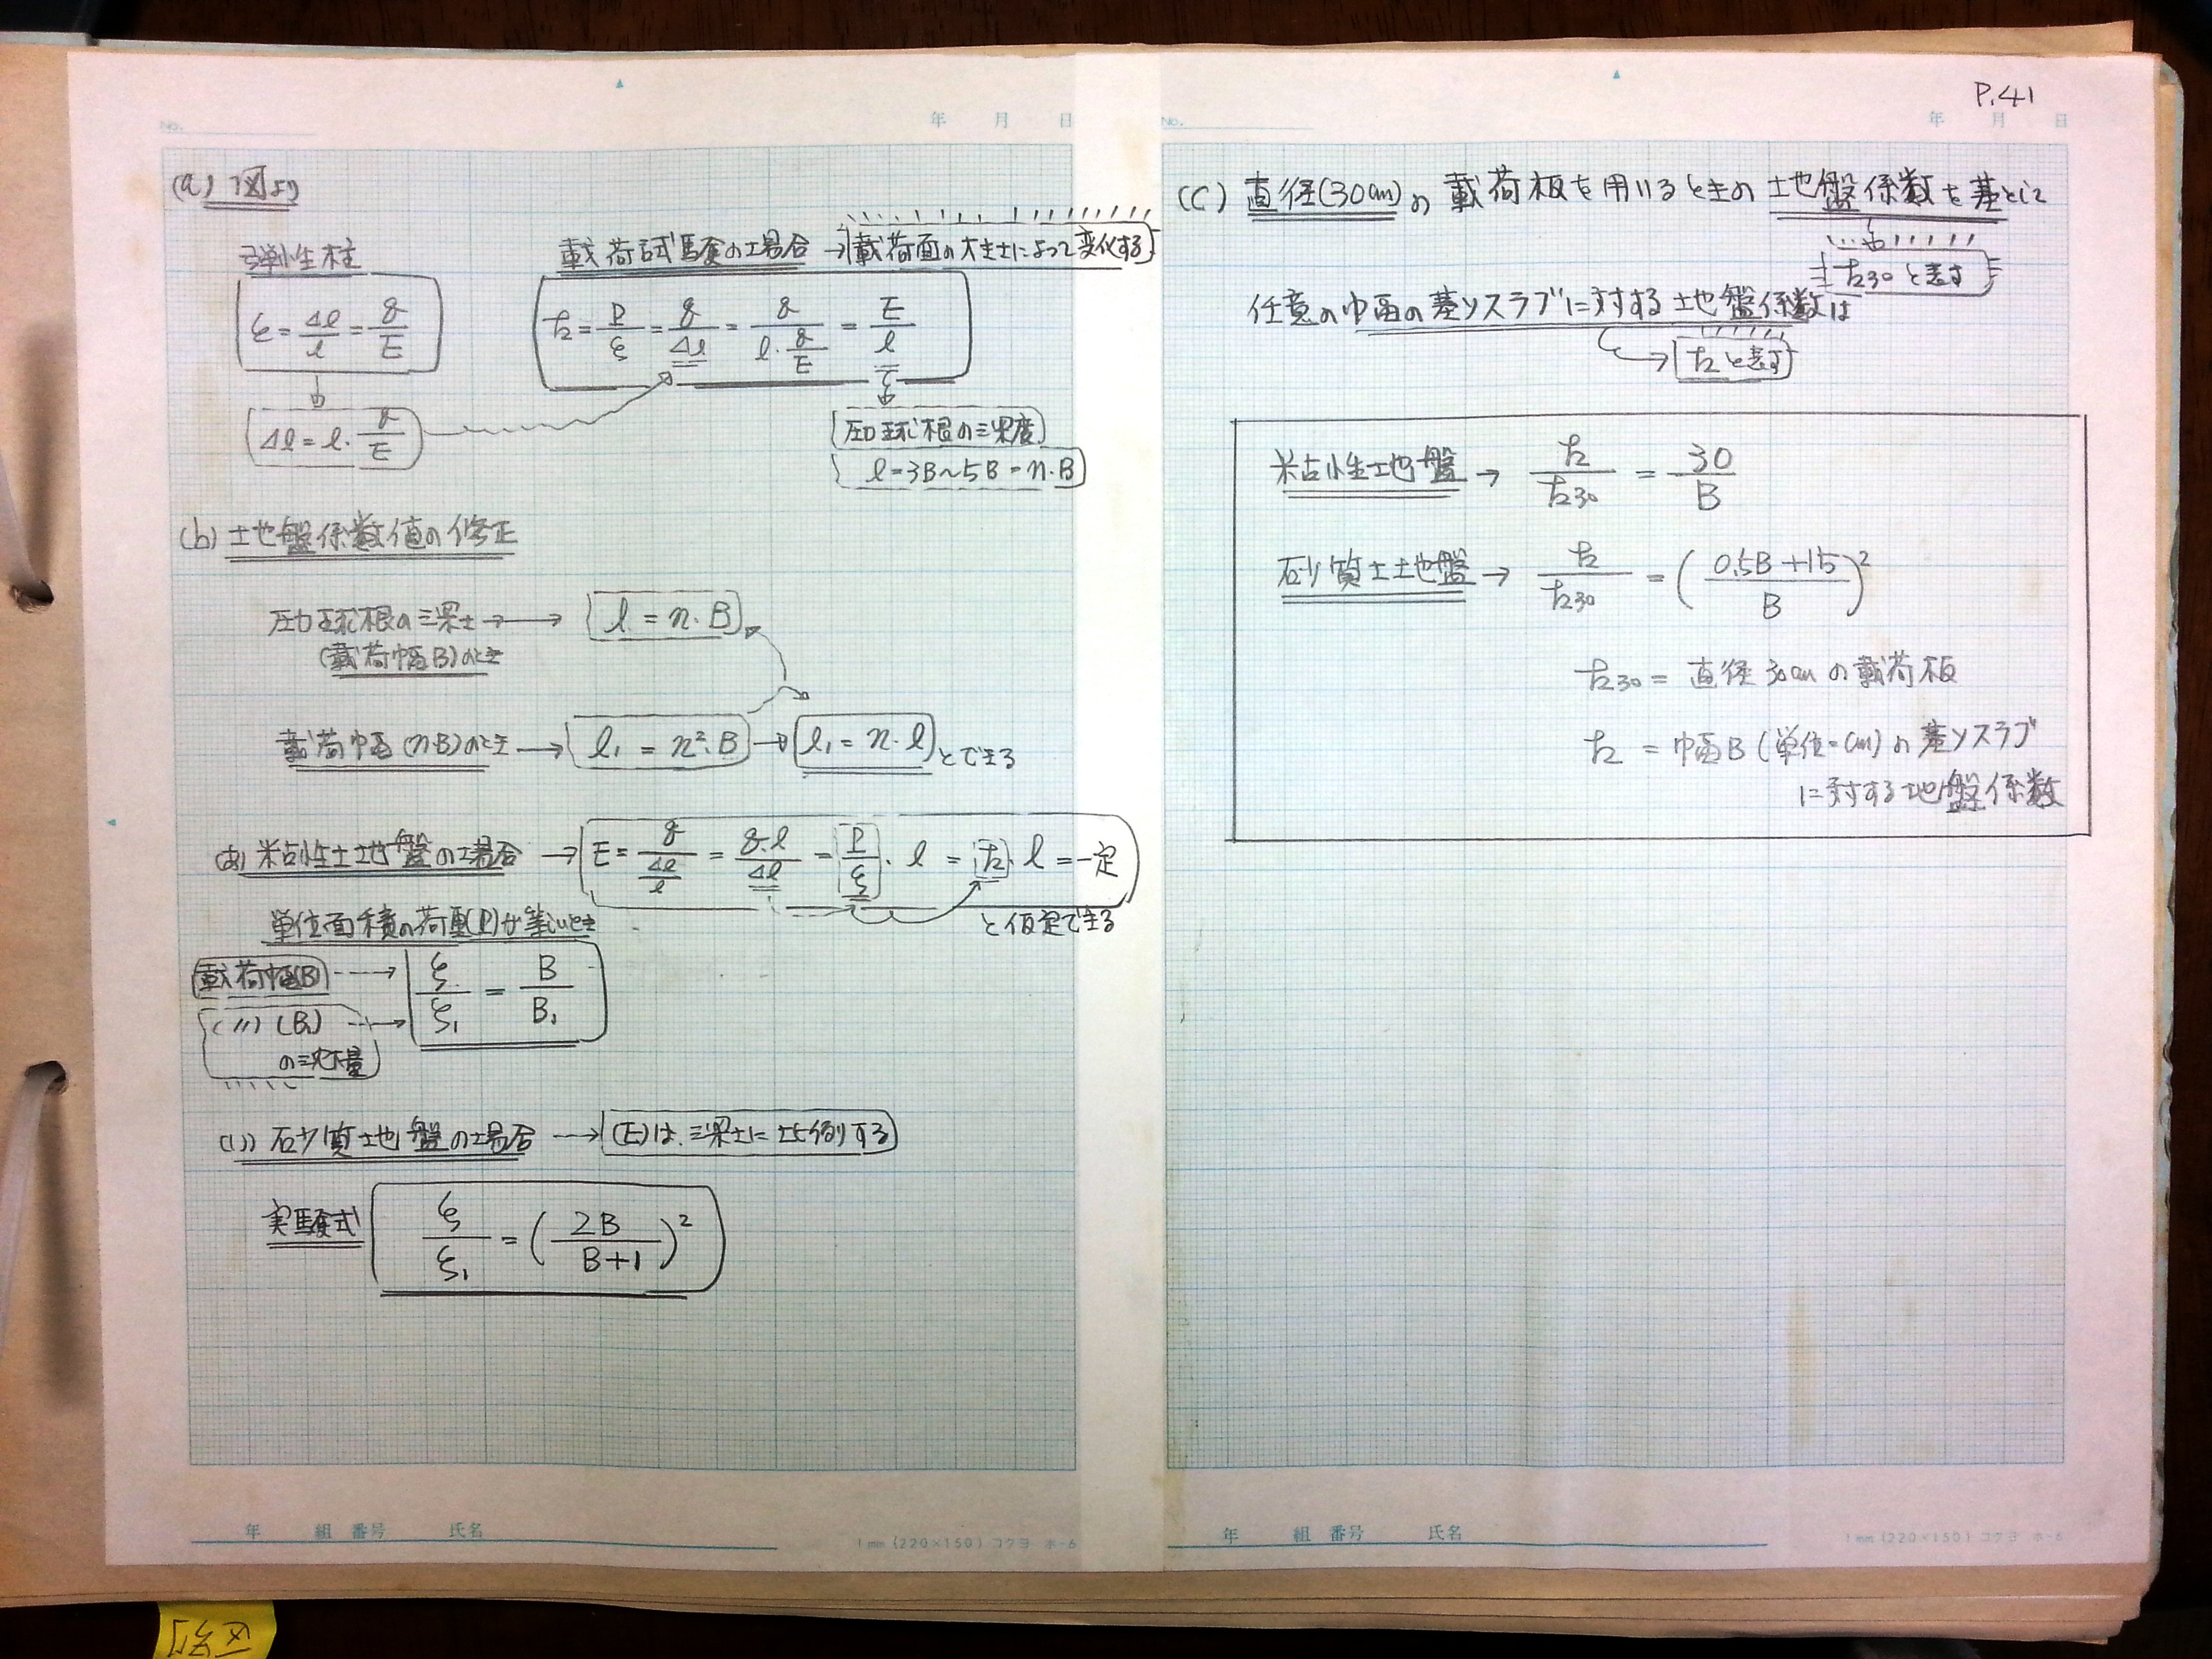 No.
年 月 日
(a) 1図より
弾性柱
ε = Δl/l = q/E
Δl = l・q/E
載荷試験の場合 → 載荷面の大きさによって変化する
k = P/ξ = q/Δl = q/(l・q/E) = E/l
圧力球根の深度
l = 3B～5B = n・B
(b) 地盤係数値の修正
圧力球根の深さ → l = n・B
(載荷幅B)のとき
載荷幅(n・B)のとき → l₁ = n²・B → l₁ = n・l とできる
(あ) 粘性土地盤の場合 → E = q/(Δl/l) = q・l/Δl = P/ξ・l = k・l = 一定
と仮定できる
単位面積の荷重(P)が等しいとき
載荷幅(B) → ξ/ξ₁ = B/B₁
(〃) (B₁) →
の沈下量
(い) 砂質地盤の場合 → (E)は、深さに比例する
実験式 ξ/ξ₁ = (2B/(B+1))²
年 組 番号 氏名
1mm (220×150) コクヨ ホ-6
P.41
No.
年 月 日
(c) 直径(30cm)の載荷板を用いるときの地盤係数を基として
k30 と表す
任意の巾幅の基ソスラブに対する地盤係数は
k と表す
粘性地盤 → k/k30 = 30/B
砂質土地盤 → k/k30 = ((0.5B+15)/B)²
k30 = 直径30cmの載荷板
k = 巾幅B(単位=cm)の基ソスラブ
に対する地盤係数
年 組 番号 氏名
1mm (220×150) コクヨ ホ-6